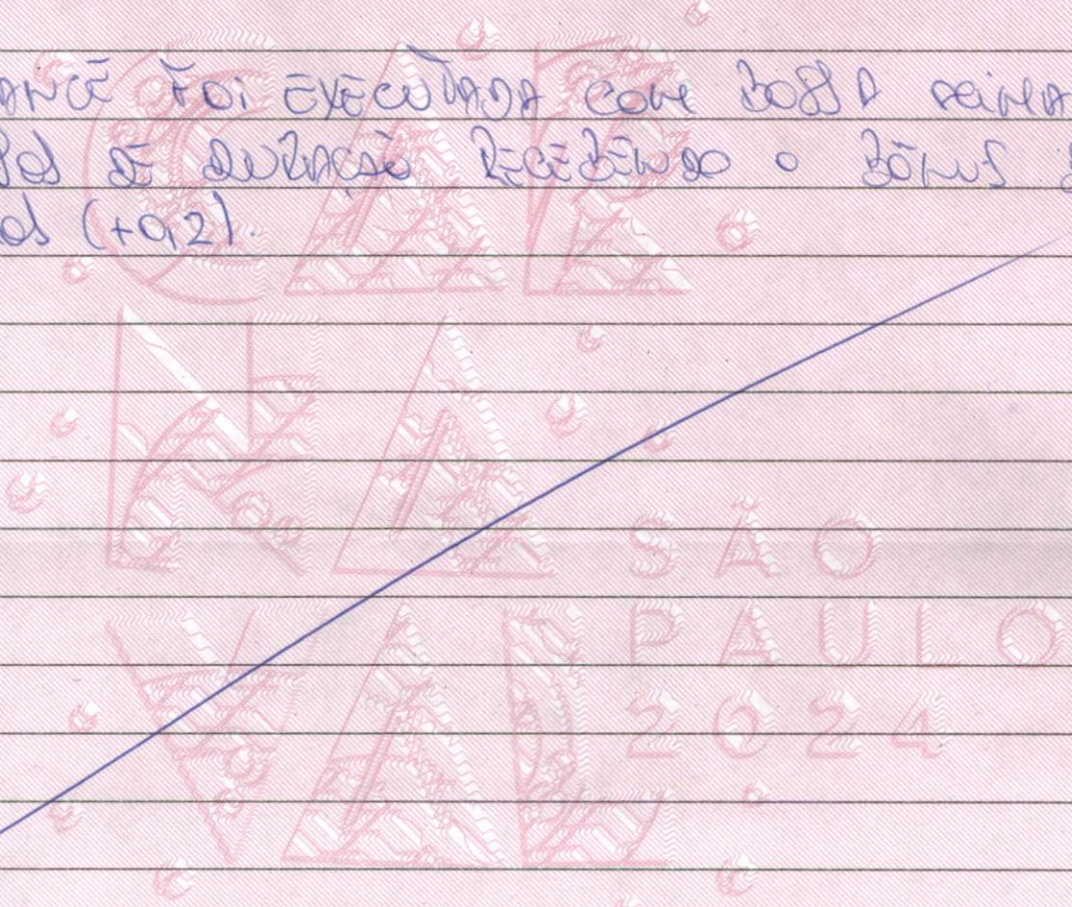 ANCE FOI EXECUTADA COM BOSSA ACIMA
DE DURAÇÃO RECEBENDO O BÔNUS
(+0,2).
CAR
NA
SÃO
PAULO
VAL
2024